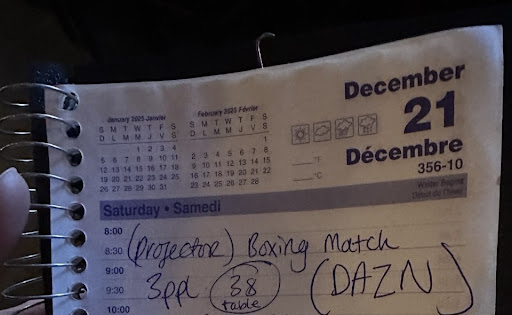 January 2025 Janvier
S M T W T F S
D L M M J V S
1 2 3 4
5 6 7 8 9 10 11
12 13 14 15 16 17 18
19 20 21 22 23 24 25
26 27 28 29 30 31
February 2025 Février
S M T W T F S
D L M M J V S
1
2 3 4 5 6 7 8
9 10 11 12 13 14 15
16 17 18 19 20 21 22
23 24 25 26 27 28
°F
°C
December
21
Décembre
356-10
Winter Begins
Début de l'hiver
Saturday • Samedi
8:00
8:30 (Projector) Boxing Match
9:00
9:30 3ppl 38 table (DAZN)
10:00